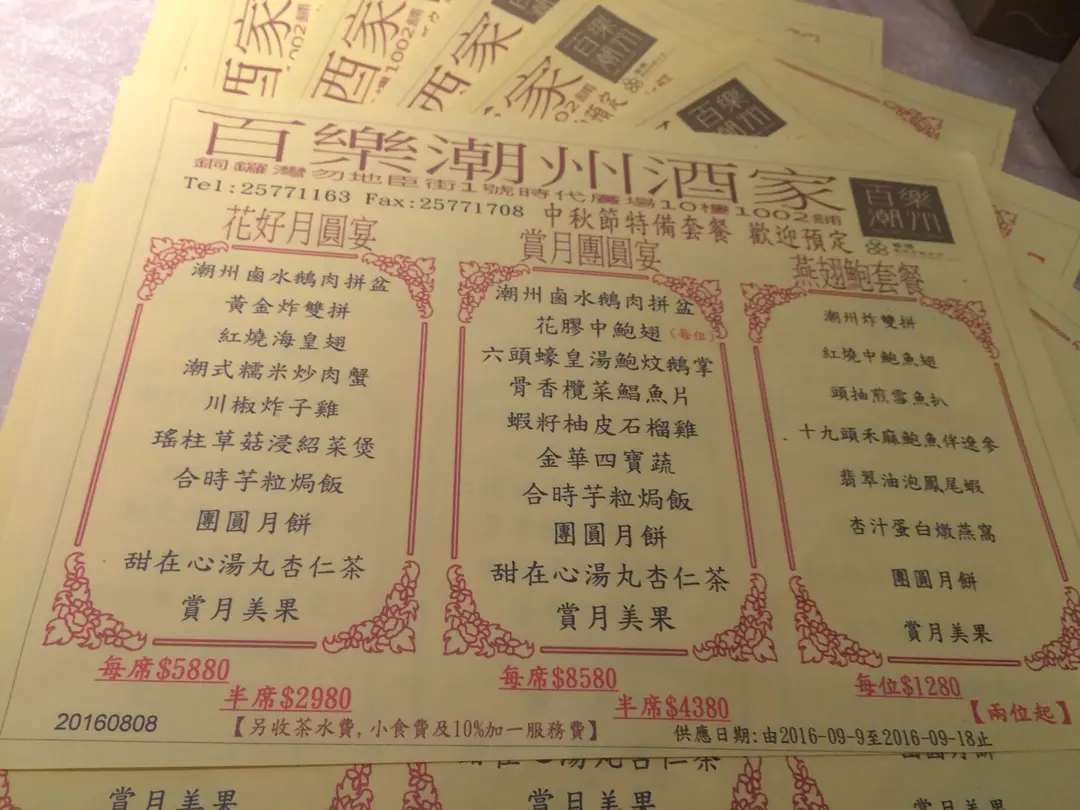 百樂潮州酒家
百樂
潮州
銅鑼灣勿地臣街1號時代廣場10樓1002舖
Tel:25771163 Fax:25771708
中秋節特備套餐 歡迎預定
花好月圓宴
潮州鹵水鵝肉拼盆
黃金炸雙拼
紅燒海皇翅
潮式糯米炒肉蟹
川椒炸子雞
瑤柱草菇浸紹菜煲
合時芋粒焗飯
團圓月餅
甜在心湯丸杏仁茶
賞月美果
每席$5880
半席$2980
賞月團圓宴
潮州鹵水鵝肉拼盆
花膠中鮑翅(每位)
六頭蠔皇湯鮑炆鵝掌
骨香欖菜鯧魚片
蝦籽柚皮石榴雞
金華四寶蔬
合時芋粒焗飯
團圓月餅
甜在心湯丸杏仁茶
賞月美果
每席$8580
半席$4380
燕翅鮑套餐
潮州炸雙拼
紅燒中鮑魚翅
頭抽煎雪魚扒
十九頭禾麻鮑魚伴遼參
翡翠油泡鳳尾蝦
杏汁蛋白燉燕窩
團圓月餅
賞月美果
每位$1280
【兩位起】
20160808
【另收茶水費,小食費及10%加一服務費】
供應日期:由2016-09-9至2016-09-18止
賞月美果
賞月美果